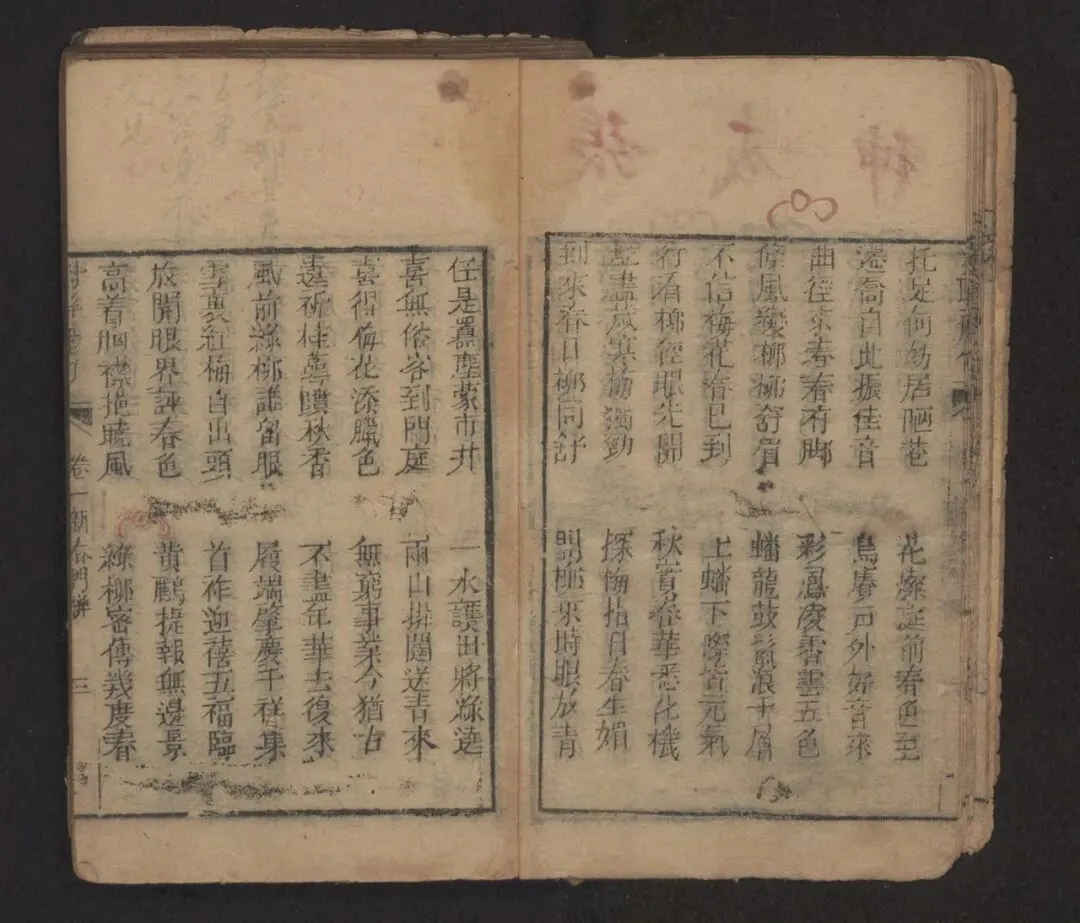 托足何妨居陋巷
遷喬自此振佳音
曲徑來春春有脚
條風 柳柳舒眉
不信梅花春已到
行看柳徑眼先開
歷盡歲寒梅獨勁
到來春日柳同舒
花燦庭前春色至
鳥賡戶外好音來
彩鳳凌霄雲五色
蟠龍鼓鬣浪千層
上蟠下際皆元氣
秋實春華悉化機
探梅指日春生媚
問柳來時眼放青
任是囂塵蒙市井
喜無俗客到門庭
喜得梅花添臘色
還祈桂蕚噴秋香
風前綠柳誰留眼
雪裏紅梅自出頭
放開眼界評春色
高着胸襟挹曉風
一水護田將綠遶
兩山排闥送青來
無窮事業今猶古
不盡年華去復來
履端肇慶千祥集
首祚迎禧五福臨
黃鸝捷報無邊景
綠柳密傳幾度春
卷一 新春門聯 三